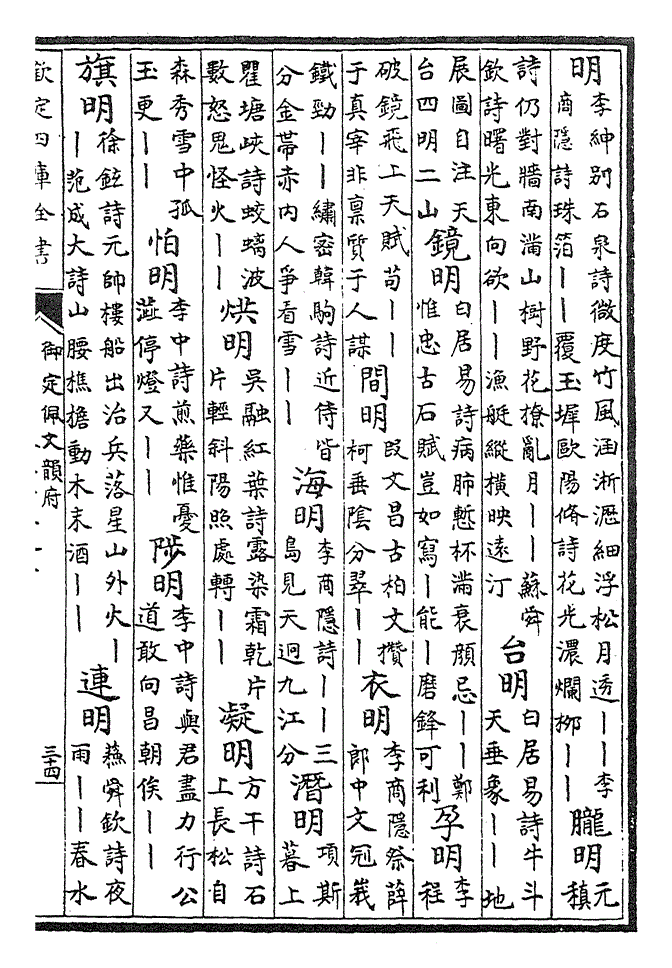 明李紳別石泉詩微度竹風涵淅瀝細浮松月透丨丨李商隱詩珠箔丨丨覆玉墀歐陽脩詩花光濃爛栁丨丨朧明元稹
詩仍對牆南滿山樹野花撩亂月丨丨蘇舜欽詩曙光東向欲丨丨漁艇縱橫映遠汀台明白居易詩牛斗天垂象丨丨地
展圖自注天台四明二山鏡明白居易詩病肺慙杯滿衰顔忌丨丨鄭惟忠古石賦豈如寫丨能丨磨鋒可利孕明李程
破鏡飛上天賦苟丨丨于真宰非稟質于人謀間明段文昌古柏文攢柯垂陰分翠丨丨衣明李商隱祭薛郎中文冠峩
鐵勁丨丨繡密韓駒詩近侍皆分金帶赤内人爭看雪丨丨海明李商隱詩丨丨三島見天迥九江分潛明項斯暮上
瞿塘峽詩蛟螭波數怒鬼怪火丨丨烘明吳融紅葉詩露染霜乾片片輕斜陽照處轉丨丨凝明方干詩石上長松自
森秀雪中孤玉更丨丨怕明李中詩煎藥惟憂澁停燈又丨丨陟明李中詩與君盡力行公道敢向昌朝俟丨丨
旗明徐鉉詩元帥樓船出治兵落星山外火丨丨范成大詩山腰樵擔動木末酒丨丨連明蘇舜欽詩夜雨丨丨春水
欽定四庫全書
御定佩文韻府
三十四